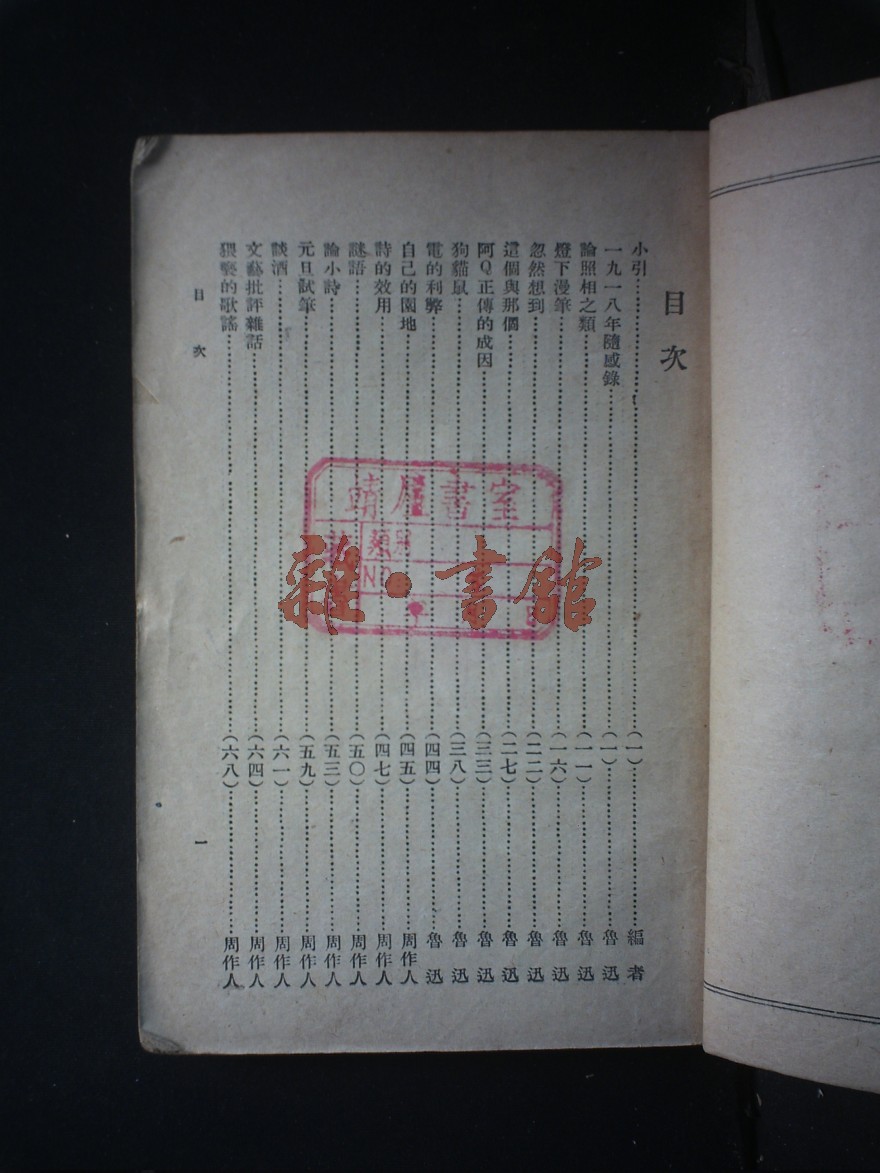 目次
小引……(一)……編者
一九一八年隨感錄……(一)……魯迅
論照相之類……(一一)……魯迅
燈下漫筆……(一六)……魯迅
忽然想到……(二二)……魯迅
這個與那個……(二七)……魯迅
阿Q正傳的成因……(三三)……魯迅
狗貓鼠……(三八)……魯迅
電的利弊……(四四)……魯迅
自己的園地……(四五)……周作人
詩的效用……(四七)……周作人
謎語……(五〇)……周作人
論小詩……(五三)……周作人
元旦試筆……(五九)……周作人
談酒……(六一)……周作人
文藝批評雜話……(六四)……周作人
猥褻的歌謠……(六八)……周作人
目次
一
書室
類
NO
雜·書館